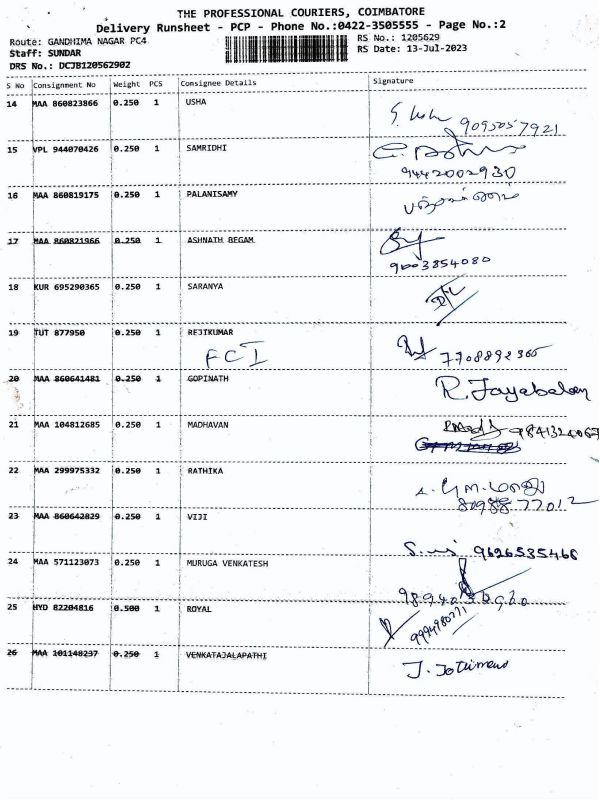 THE PROFESSIONAL COURIERS, COIMBATORE
Delivery Runsheet - PCP - Phone No.:0422-3505555 - Page No.:2
Route: GANDHIMA NAGAR PC4 RS No.: 1205629
Staff: SUNDAR RS Date: 13-Jul-2023
DRS No.: DCJB120562902
S No Consignment No Weight PCS Consignee Details Signature
14 MAA 860823866 0.250 1 USHA
9095057921
15 VPL 944070426 0.250 1 SAMRIDHI
9442002930
16 MAA 860819175 0.250 1 PALANISAMY
17 MAA 860821966 0.250 1 ASHNATH BEGAM
9003854080
18 KUR 695290365 0.250 1 SARANYA
19 TUT 877950 0.250 1 REJIKUMAR
FCI 7708892365
20 MAA 860641481 0.250 1 GOPINATH
R. Jayabalan
21 MAA 104812685 0.250 1 MADHAVAN
22 MAA 299975332 0.250 1 RATHIKA
8098877012
23 MAA 860642829 0.250 1 VIJI
9626535466
24 MAA 571123073 0.250 1 MURUGA VENKATESH
25 HYD 82204816 0.500 1 ROYAL
9994980771
26 MAA 101148237 0.250 1 VENKATAJALAPATHI